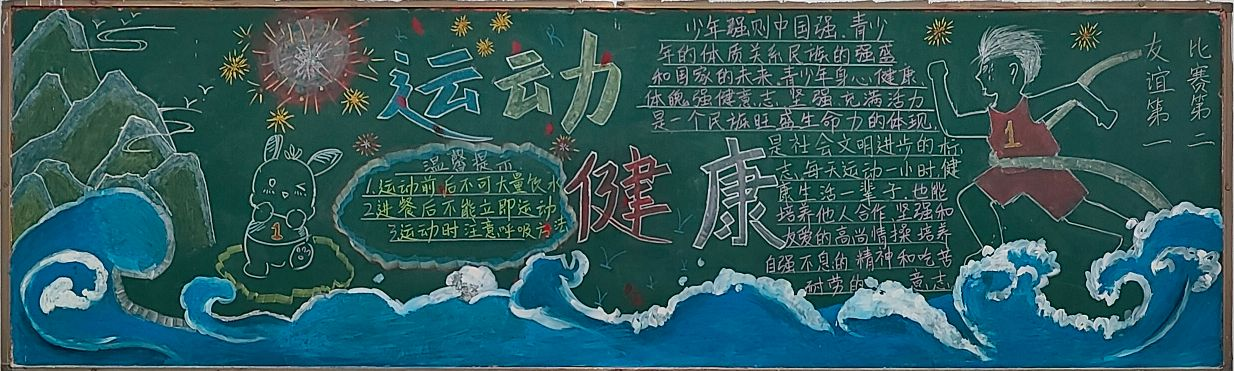 运动
健康
温馨提示
1.运动前后不可大量饮水
2.进餐后不能立即运动
3运动时注意呼吸方法
少年强则中国强、青少
年的体质关系民族的强盛
和国家的未来，青少年身心健康
体魄强健意志、坚强、充满活力
是一个民族旺盛生命力的体现，
是社会文明进步的标
志，每天运动一小时，健
康生活一辈子，也能
培养他人合作，坚强和
友爱的高尚情操，培养
自强不息的精神和吃苦
耐劳的 意志
1
1
友谊第一
比赛第二